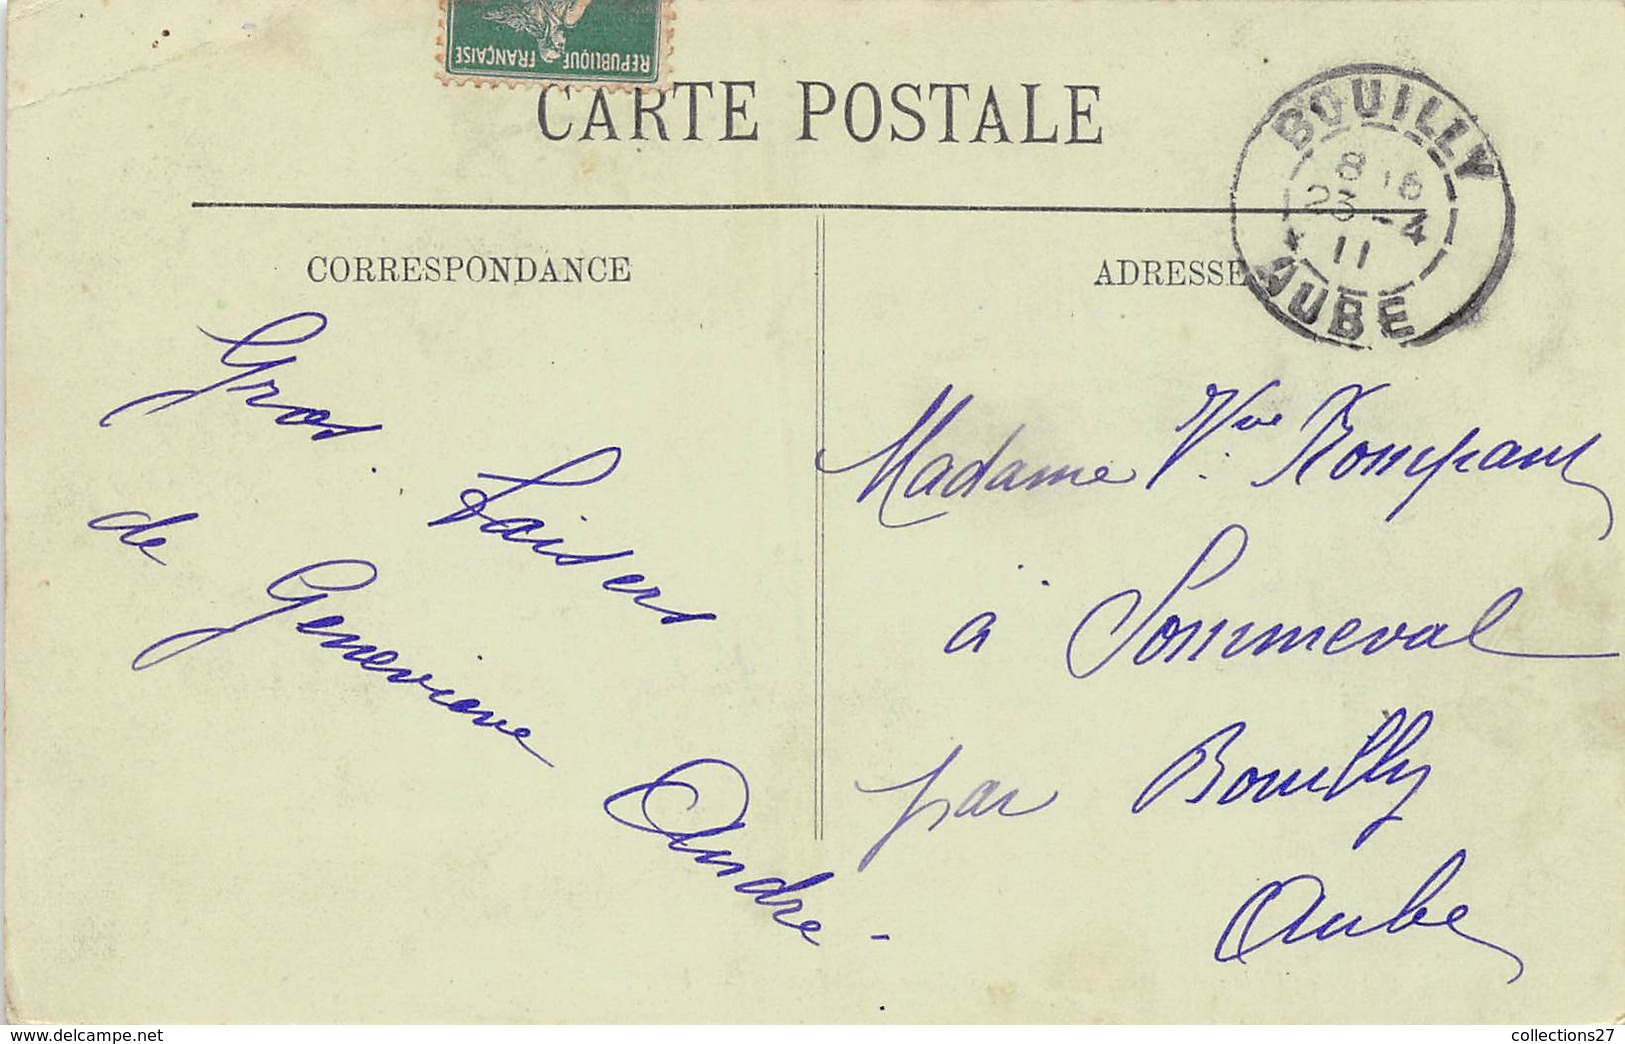 REPUBLIQUE FRANÇAISE
CARTE POSTALE
BOUILLY
8 15
23 -4
11
* AUBE
CORRESPONDANCE
ADRESSE
Gros baisers
de Genevieve
Andre -
Madame Vve
à Sommeval
par Bouilly
Aube
delcampe.net
collections27